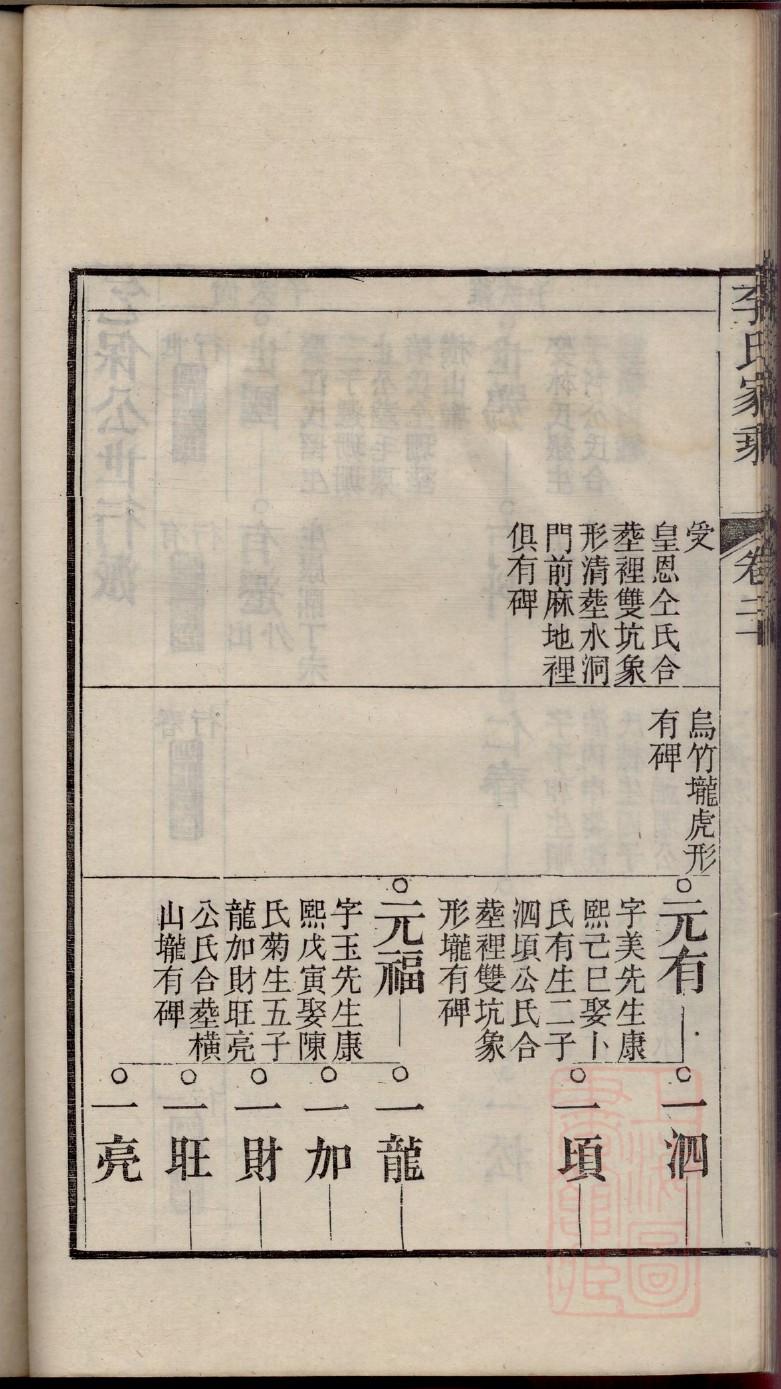 李氏家乘
卷二
受
皇恩仝氏合
塟裡雙坑象
形清塟水洞
門前麻地裡
俱有碑
烏竹壠虎形
有碑
元有
字美先生康
熙己巳娶卜
氏有生二子
泗頃公氏合
塟裡雙坑象
形壠有碑
元福
字玉先生康
熙戊寅娶陳
氏菊生五子
龍加財旺亮
公氏合塟橫
山壠有碑
一泗
一頃
一龍
一加
一財
一旺
一亮